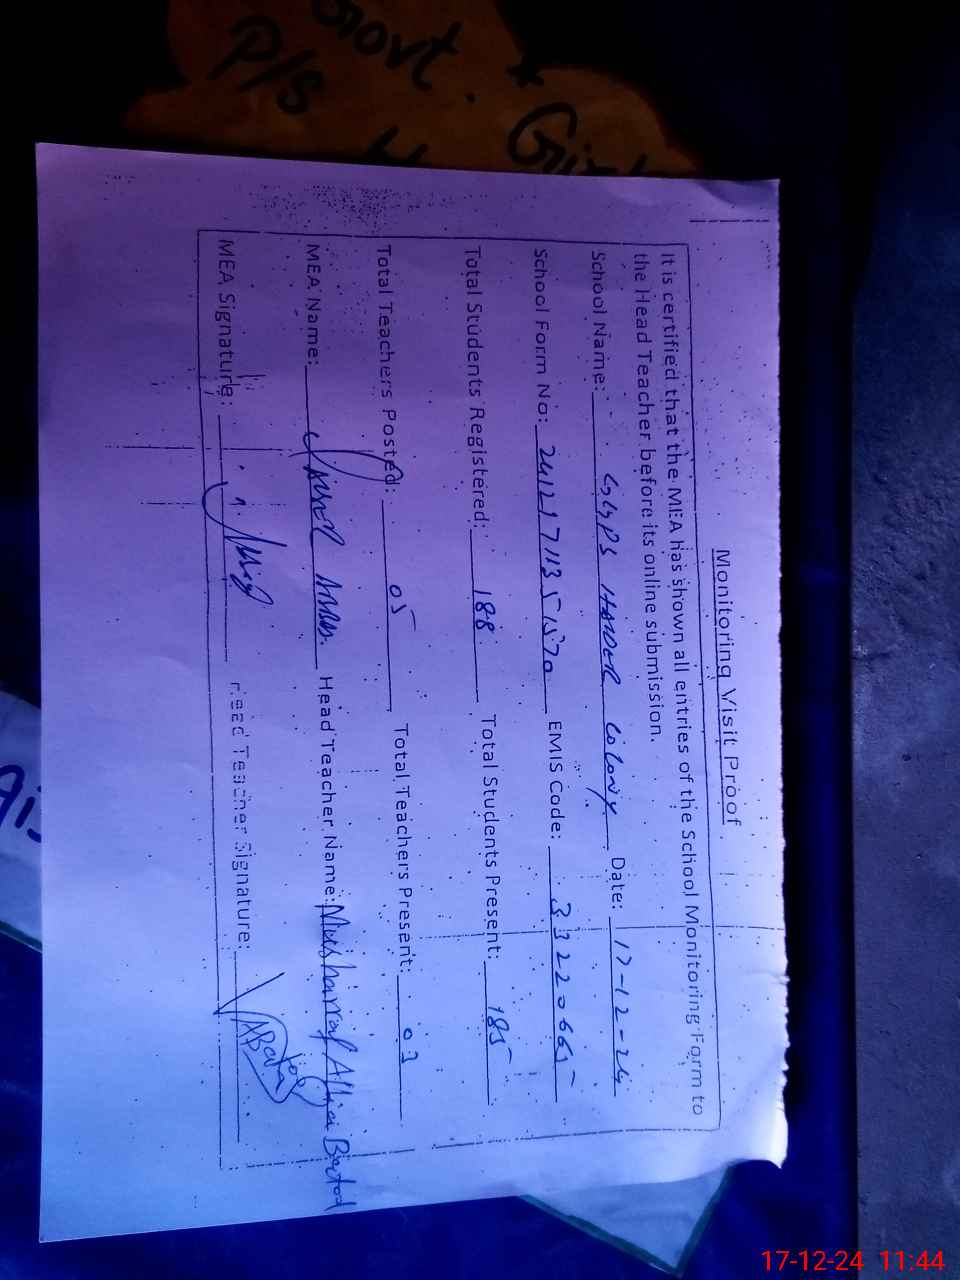 Govt. * Girl
P/S
Monitoring Visit Proof
It is certified that the MEA has shown all entries of the School Monitoring Form to
the Head Teacher before its online submission.
School Name: GGPS Colony Date: 17-12-24
School Form No: EMIS Code: 33220665
Total Students Registered: 188 Total Students Present: 185
Total Teachers Posted: 05 Total Teachers Present: 03
MEA Name: Head Teacher Name: Musharraf Batool
MEA Signature: Head Teacher Signature:
17-12-24 11:44